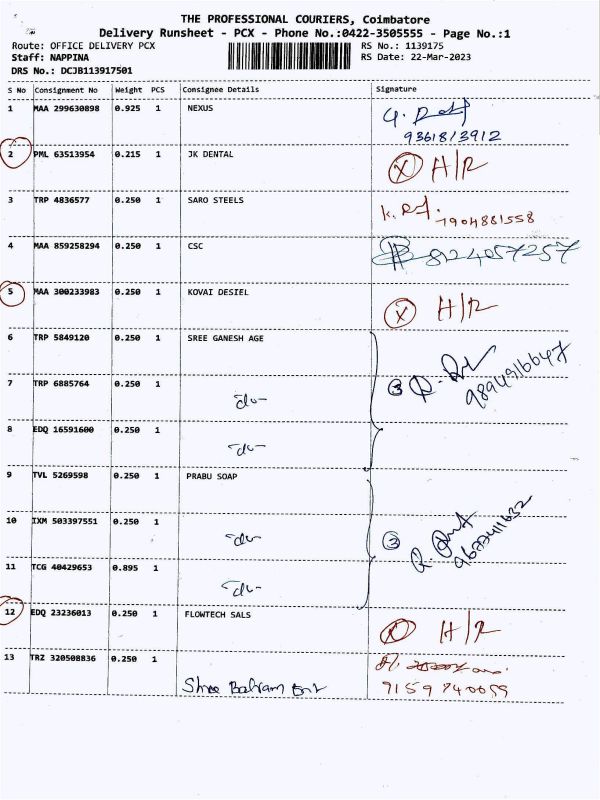 THE PROFESSIONAL COURIERS, Coimbatore
Delivery Runsheet - PCX - Phone No.:0422-3505555 - Page No.:1
Route: OFFICE DELIVERY PCX RS No.: 1139175
Staff: NAPPINA RS Date: 22-Mar-2023
DRS No.: DCJB113917501
S No Consignment No Weight PCS Consignee Details Signature
1 MAA 299630898 0.925 1 NEXUS
9361813912
2 PML 63513954 0.215 1 JK DENTAL X H/R
3 TRP 4836577 0.250 1 SARO STEELS
7904881558
4 MAA 859258294 0.250 1 CSC 8124057257
5 MAA 300233983 0.250 1 KOVAI DESIEL X H/R
6 TRP 5849120 0.250 1 SREE GANESH AGE
7 TRP 6885764 0.250 1 -do- 3 9894916647
8 EDQ 16591600 0.250 1 -do-
9 TVL 5269598 0.250 1 PRABU SOAP
10 IXM 503397551 0.250 1 -do- 3
11 TCG 40429653 0.895 1 -do-
12 EDQ 23236013 0.250 1 FLOWTECH SALS X H/R
13 TRZ 320508836 0.250 1
Shree Balram Ent 9159740059